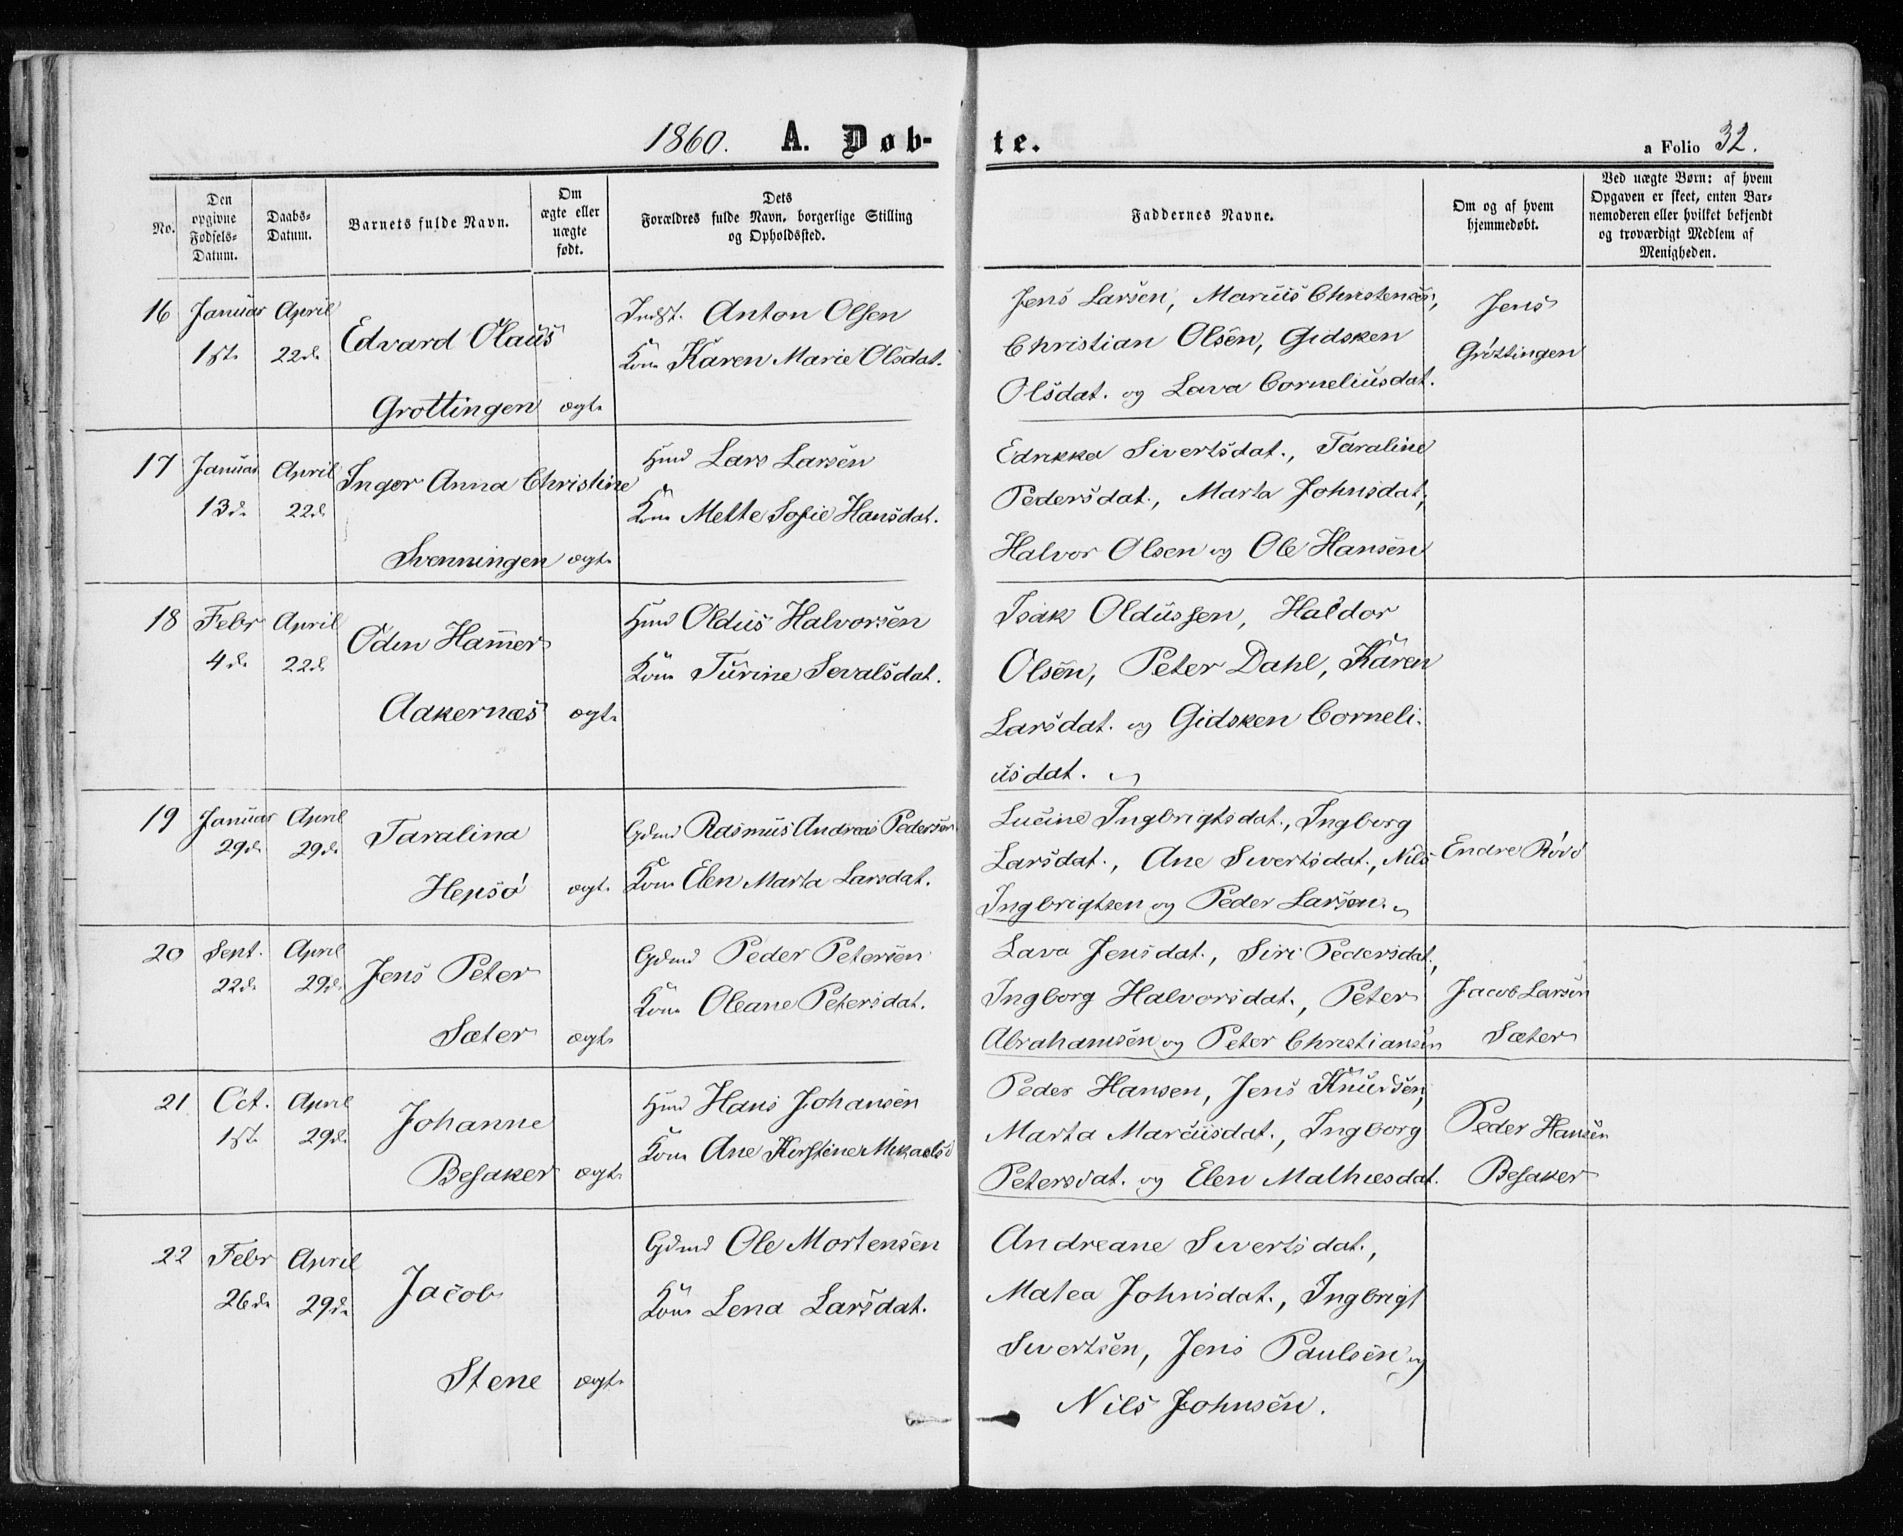 1860. A. Døb-
te.
a Folio 32.
No.
Den
opgivne
Fødsels-
Datum.
Daabs-
Datum.
Barnets fulde Navn.
Om
ægte eller
uægte
født.
Dets
Forældres fulde Navn, borgerlige Stilling
og Opholdssted.
Faddernes Navne.
Om og af hvem
hjemmedøbt.
Ved uægte Børn: af hvem
Opgaven er skeet, enten Bar-
nemoderen eller hvilket bekjendt
og troværdigt Medlem af
Menigheden.
16 Januar April
1st. 22d.
Edvard Olaus
Grøttingen ægt.
Indst. Anton Olsen
Kone Karen Marie Olsdat.
Jens Larsen, Marius Christensen,
Christian Olsen, Gidsken
Olsdat. og Lava Corneliusdat.
Jens
Grøttingen
17 Januar April
13d. 22d.
Inger Anna Christine
Svenningen ægt.
Hmd Lars Larsen
Kone Mette Sofie Hansdat.
Edrikka Sivertsdat., Taraline
Pedersdat., Marta Johnsdat,
Halvor Olsen og Ole Hansen
18 Febr April
4d. 22d.
Oden Hammer
Aakernæs ægt.
Hmd Oldus Halvorsen
Kone Turine Sevalsdat.
Isak Oldussen, Haldor
Olsen, Peter Dahl, Karen
Larsdat. og Gidsken Corneli-
usdat.
19 Januar April
29d. 29d.
Taralina
Hepsø ægt.
Gdmd Rasmus Andreas Pedersen
Kone Elen Marta Larsdat.
Lucine Ingbrigtsdat., Ingborg
Larsdat., Ane Sivertsdat., Nils
Ingbrigtsen og Peder Larsen.
Endre Rövö
20 Sept. April
22d. 29d.
Jens Peter
Sæter ægt.
Gdmd Peder Petersen
Kone Oleane Petersdat.
Lava Jensdat., Siri Pedersdat,
Ingborg Halvorsdat., Peter
Abrahamsen og Peter Christiansen
Jacob Larsen
Sæter
21 Oct. April
1st. 29d.
Johanne
Besaker ægt.
Hmd Hans Johansen
Kone Ane Kerstine Mikaelsd
Peder Hansen, Jens Knudsen,
Marta Marcusdat., Ingborg
Petersdat. og Elen Mathiesdat.
Peder Hansen
Besaker
22 Febr April
26d. 29d.
Jacob
Stene ægt.
Gdmd Ole Mortensen
Kone Lena Larsdat.
Andreane Sivertsdat.,
Matea Johnsdat., Ingbrigt
Sivertsen, Jens Paulsen og
Nils Johnsen.